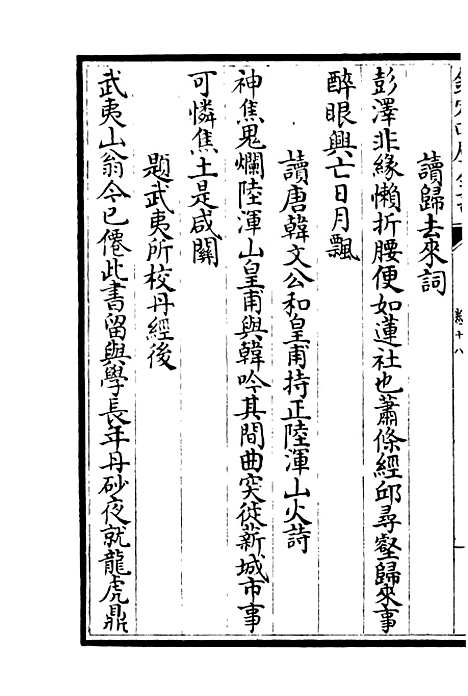 讀歸去來詞
彭澤非緣懶折腰便如蓮社也蕭條經邱尋壑歸來事
醉眼興亡日月飄
讀唐韓文公和皇甫持正陸渾山火詩
神焦鬼爛陸渾山皇甫與韓吟其間曲突徙薪城市事
可憐焦土是咸關
題武夷所校丹經後
武夷山翁今已僊此書留與學長年丹砂夜就龍虎鼎
卷十八